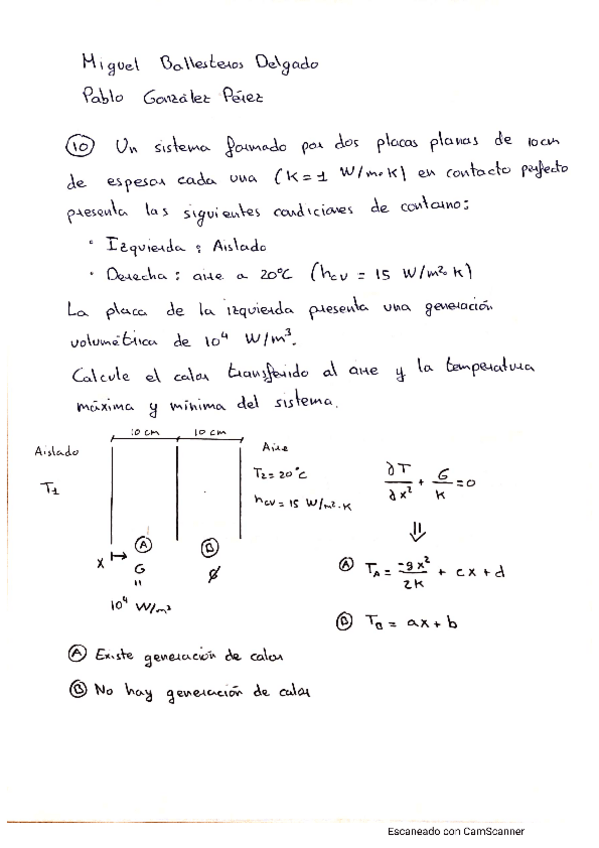 Miguel Ballesteros Delgado
Pablo González Pérez
10 Un sistema formado por dos placas planas de 10cm
de espesor cada una (K=1 W/m·K) en contacto perfecto
presenta las siguientes condiciones de contorno:
· Izquierda : Aislado
· Derecha : aire a 20°C (hcv = 15 W/m²·K)
La placa de la izquierda presenta una generación
volumétrica de 10⁴ W/m³.
Calcule el calor transferido al aire y la temperatura
máxima y mínima del sistema.
10 cm 10 cm
Aislado
T1
Aire
T2=20°C
hcv=15 W/m²·K
x
A
G
=
10⁴ W/m³
B
∅
∂T/∂x² + G/K =0
⇓
A TA = -gx²/2K + cx+d
B TB = ax+b
A Existe generación de calor
B No hay generación de calor
Escaneado con CamScanner